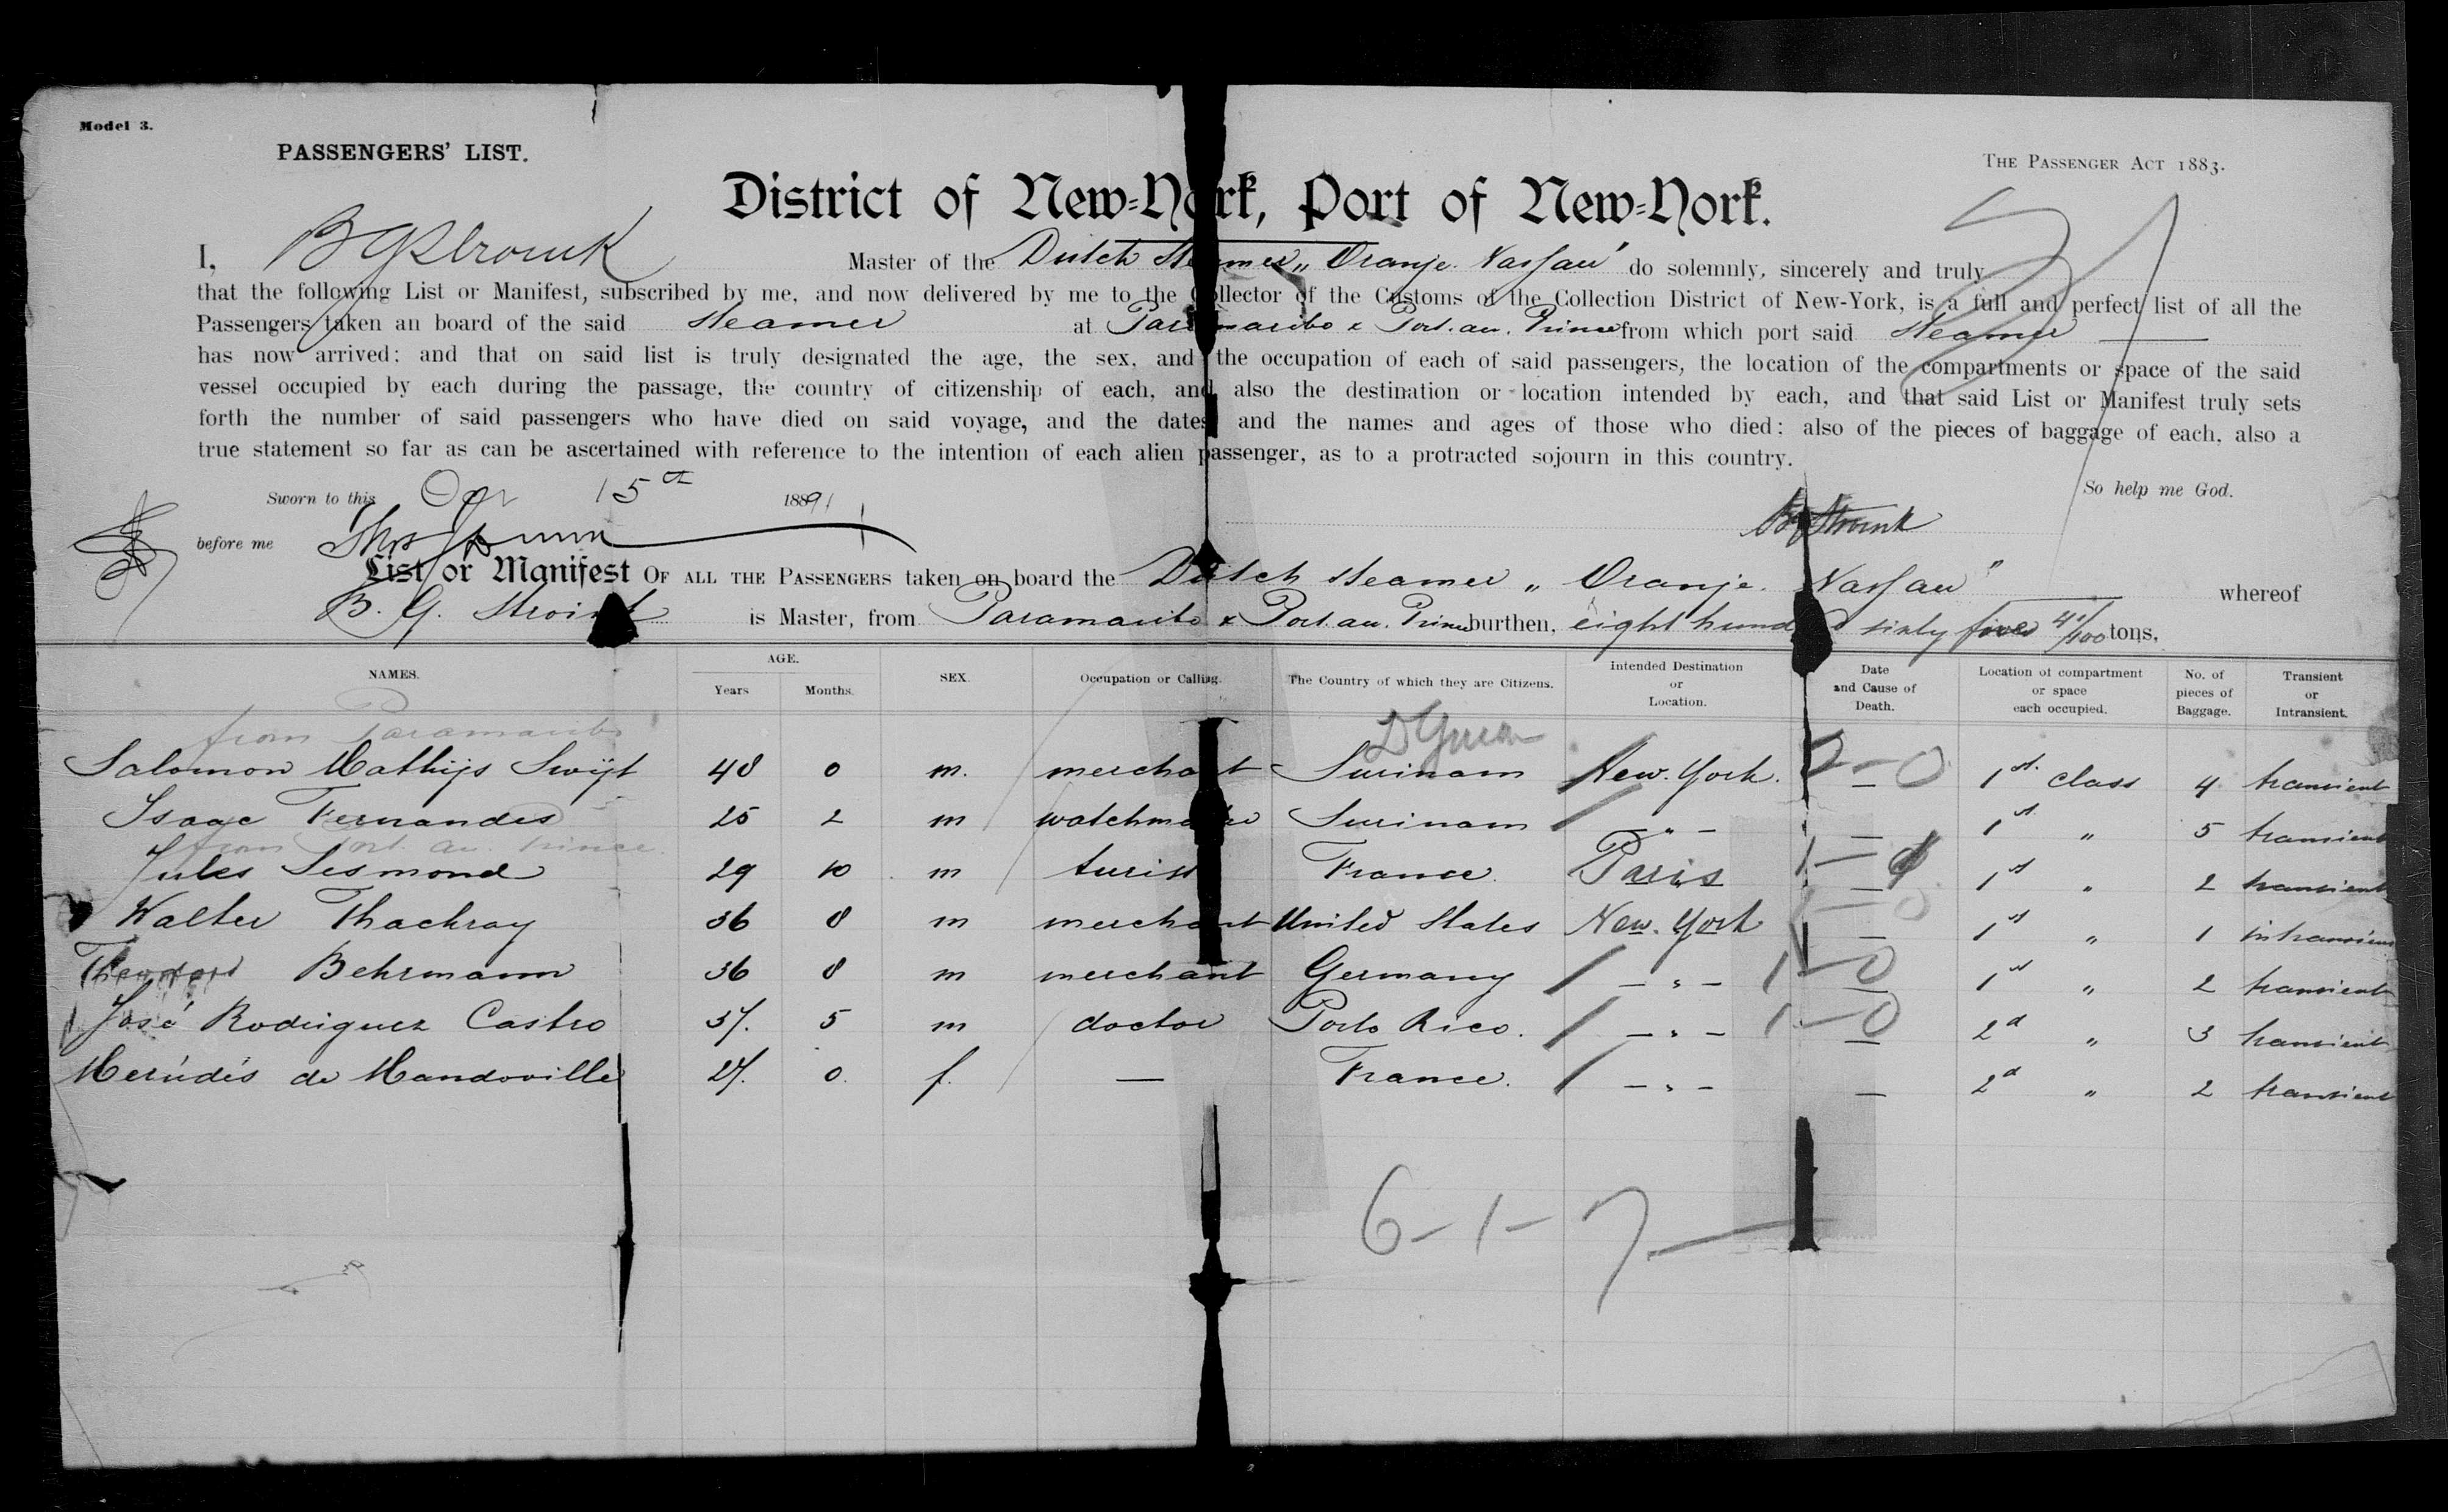 Model 3.
PASSENGERS' LIST.
THE PASSENGER ACT 1883.
District of New-York, Port of New-York.
I, B G Stroink Master of the Dutch Steamer „Oranje. Nassau" do solemnly, sincerely and truly
that the following List or Manifest, subscribed by me, and now delivered by me to the Collector of the Customs of the Collection District of New-York, is a full and perfect list of all the
Passengers taken an board of the said steamer at Paramaribo & Port. au. Prince from which port said steamer
has now arrived; and that on said list is truly designated the age, the sex, and the occupation of each of said passengers, the location of the compartments or space of the said
vessel occupied by each during the passage, the country of citizenship of each, and also the destination or location intended by each, and that said List or Manifest truly sets
forth the number of said passengers who have died on said voyage, and the dates and the names and ages of those who died; also of the pieces of baggage of each, also a
true statement so far as can be ascertained with reference to the intention of each alien passenger, as to a protracted sojourn in this country.
Sworn to this 15th 1891 So help me God.
before me BG Stroink
List or Manifest OF ALL THE PASSENGERS taken on board the Dutch steamer „Oranje. Nassau" whereof
B. G. Stroink is Master, from Paramaribo & Port. au. Prince burthen, eight hundred sixty five 41/100 tons,
NAMES. AGE. Years Months. SEX. Occupation or Calling. The Country of which they are Citizens. Intended Destination or Location. Date and Cause of Death. Location of compartment or space each occupied. No. of pieces of Baggage. Transient or Intransient.
from Paramaribo
Salomon Mathijs Swijt 48 0 m. merchant Surinam New. York. — 1st. class 4 transient
Isaac Fernandes 25 2 m watchmaker Surinam — " — — 1st " 5 transient
from Port. au. Prince.
Jules Sesmond 29 10 m turist France. Paris — 1st " 2 transient
Walter Thackray 36 8 m merchant United States New. York — 1st " 1 intransient
Behrmann 36 8 m merchant Germany — " — — 1st " 2 transient
José Rodriguez Castro 37. 5 m doctor Porto Rico. — " — — 2d " 3 transient
Merúdés de Mandoville 27. 0. f. — France. — " — — 2d " 2 transient
6 - 1 - 7 —